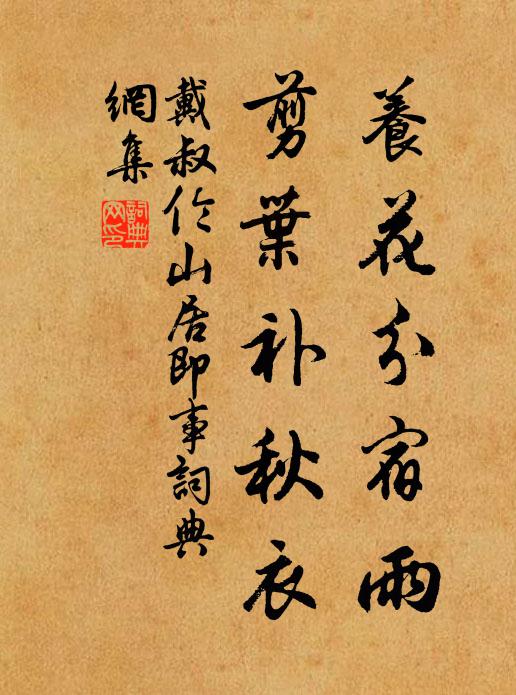 養花分宿雨
剪葉补秋衣
戴叔伦山居即事詞典
網集
詞典
网印